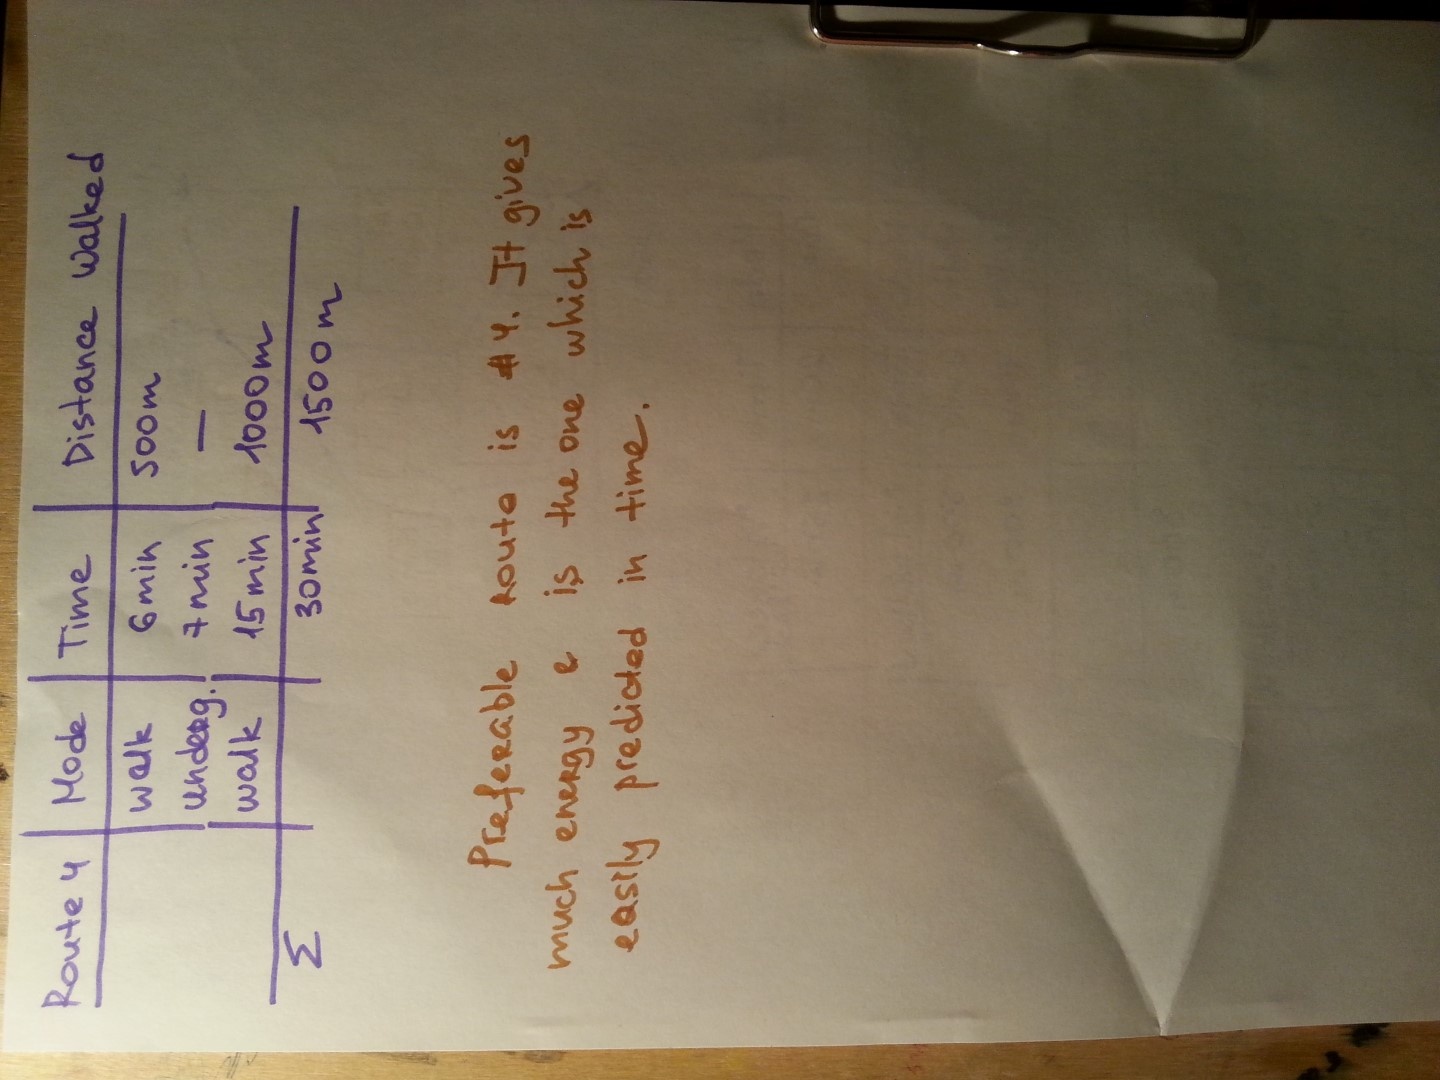 Route 4 | Mode | Time | Distance walked
walk | 6min | 500m
underg. | 7min | —
walk | 15min | 1000m
Σ | 30min | 1500m
Preferable route is #4. It gives
much energy e is the one which is
easily predicted in time.